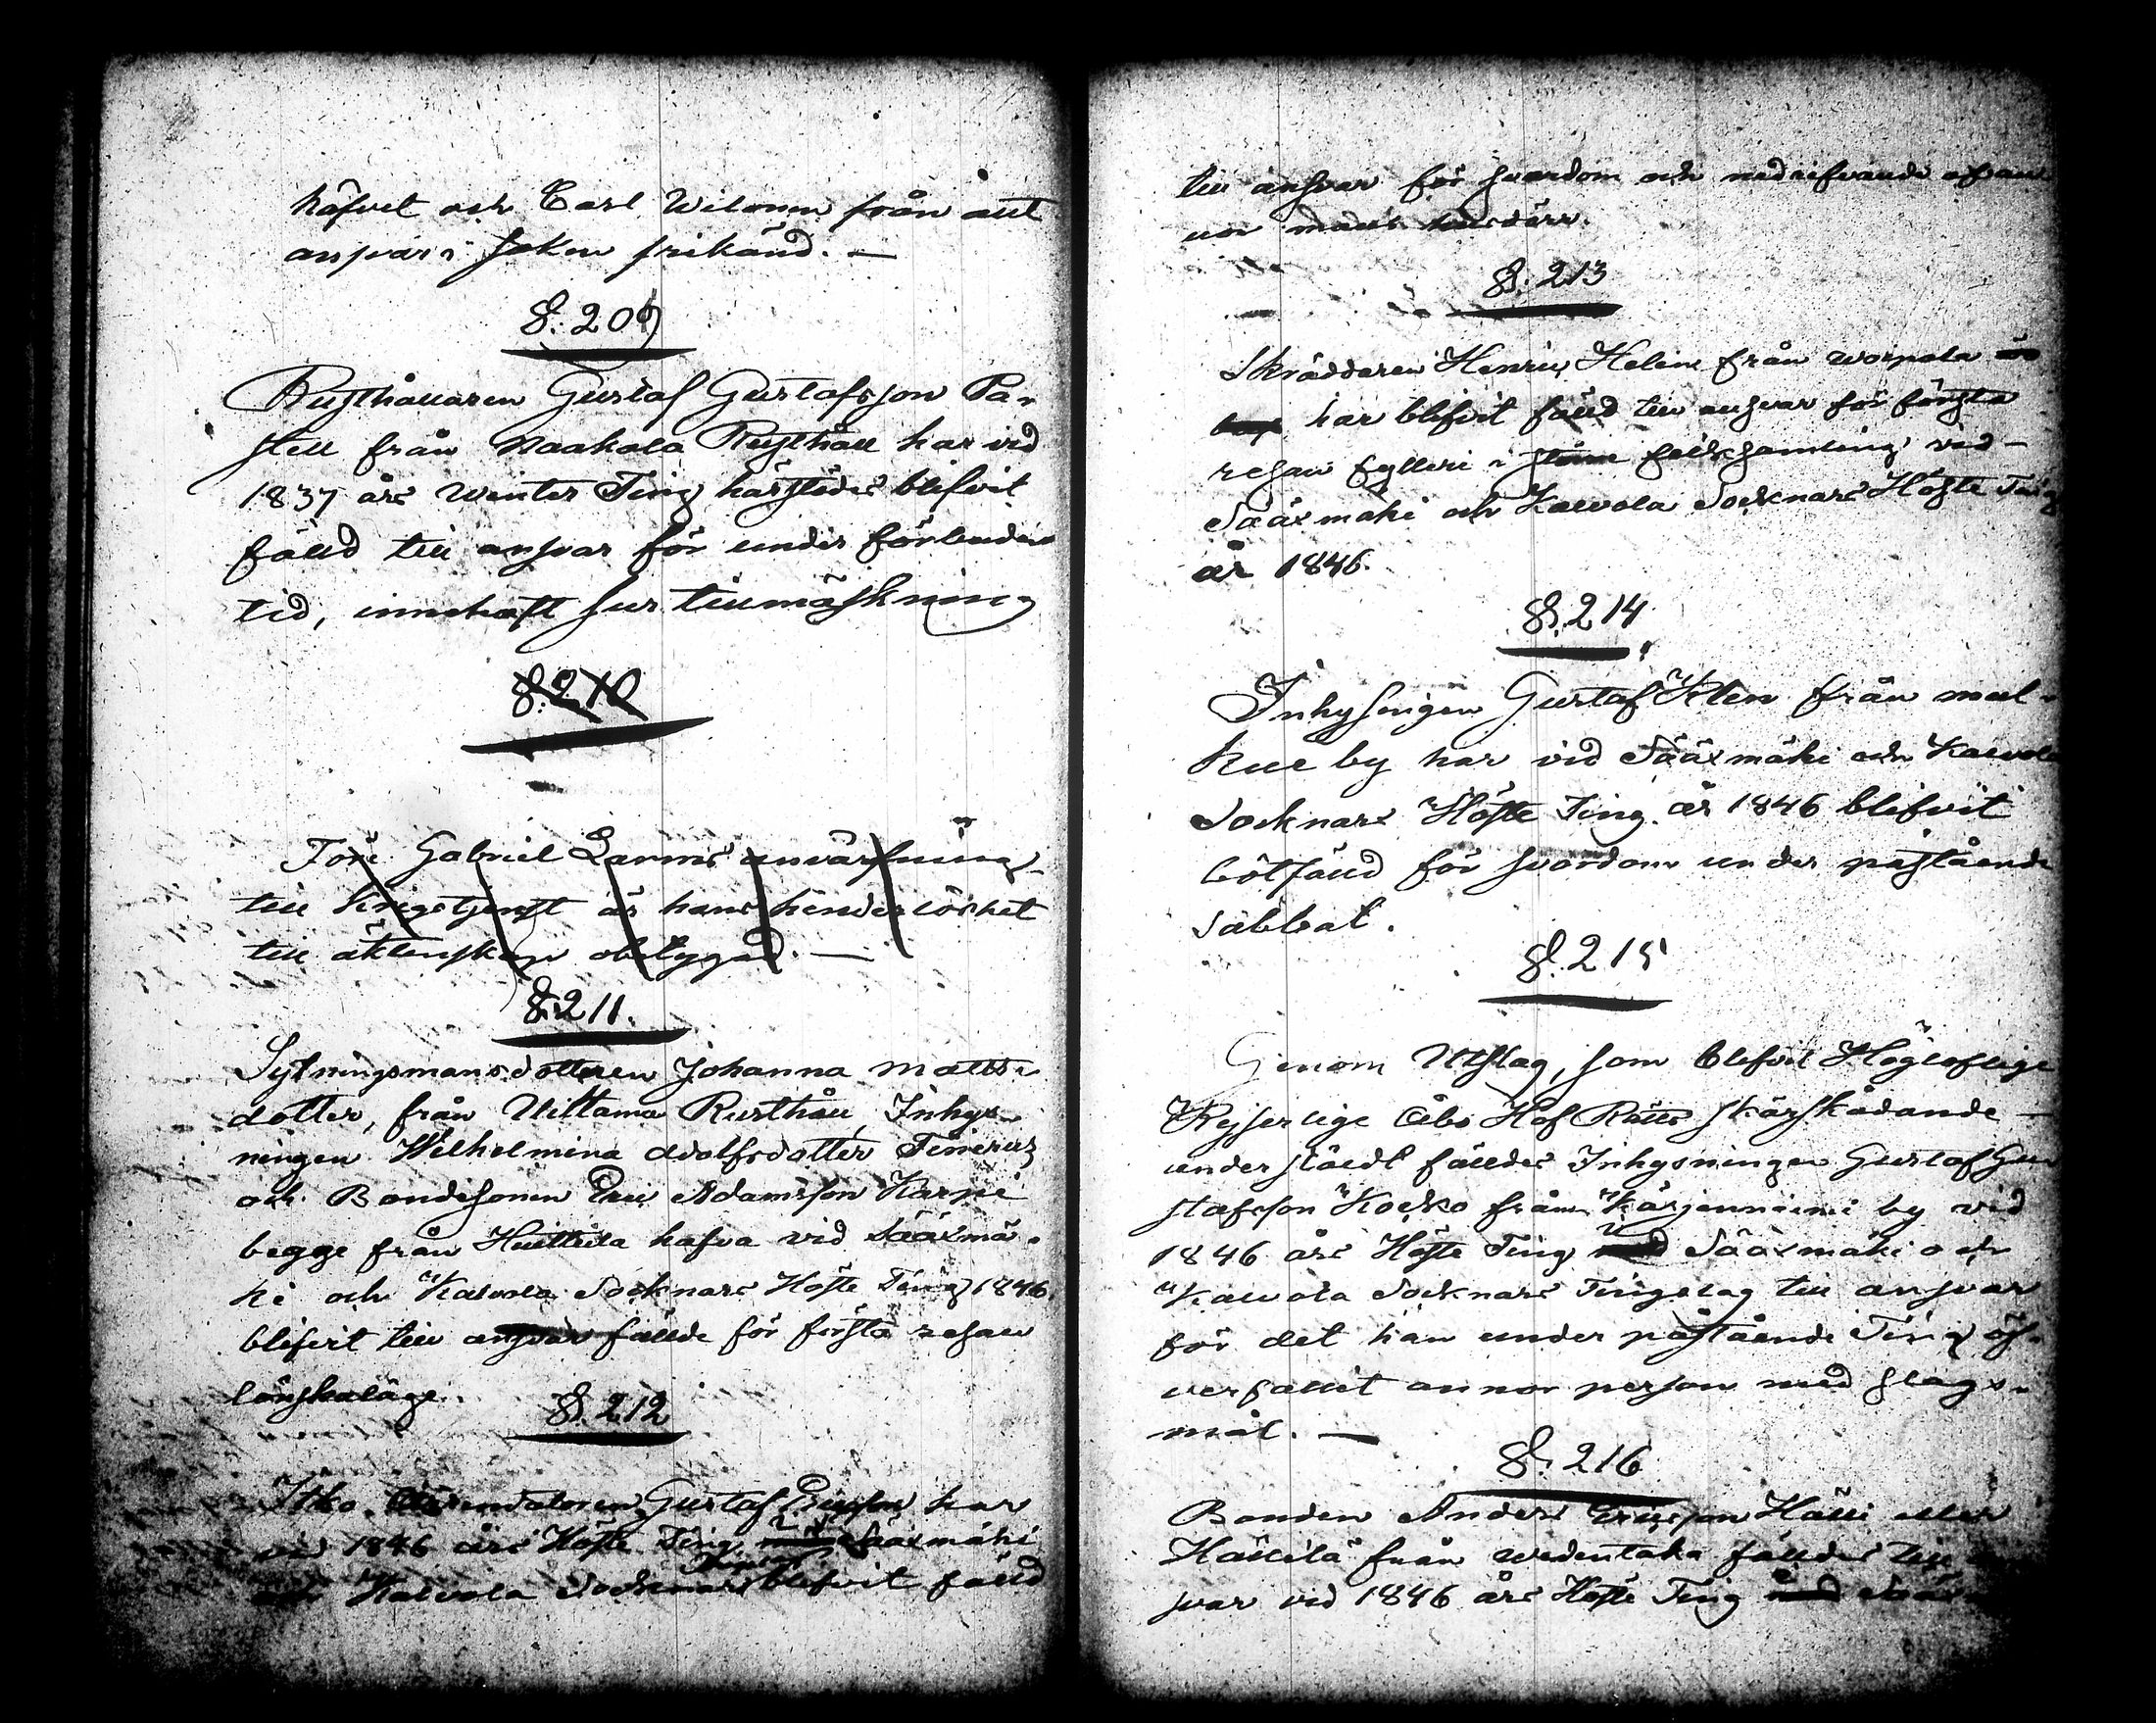 häfvet och Carl Wilonen från allt
ansvar i saken frikänd. —
§. 209
Rusthållaren Gustaf Gustafsson Pa-
stell från Naakala Rusthåll har vid
1837 års Winter Ting härstädes blifvit
fälld till ansvar för under förbuden
tid, innehaft sur tillmäskning
§. 210
Torp. Gabriel Larms
till krigstjenst är hans
till äktenskap obetygad. —
§. 211.
Sytningsmansdotteren Johanna Matts-
dotter, från Uittamo Rusthåll, Inhys-
ningen Wilhelmina Adolfsdotter
och Bondesonen Eric Adamsson Karpi
begge från Huittula hafva vid Sääxmä-
ki och Kalvola Socknars Höste Ting 1846
blifvit till ansvar fällde för första resan
lönskaläge.
§. 212
Itko. Arrendatoren Gustaf Ericsson har
vid 1846 års Höste Ting Sääxmäki
och Kalvola Socknars blifvit fälld
till ansvar för svordom och nedrifvande af an-
nor mans
§. 213
Skräddaren Henric Helin från Worpala
har blifvit fälld till ansvar för första
resan fylleri i större folksamling vid
Sääxmäki och Kalvola Socknars Höste Ting
år 1846.
§. 214
Inhysingen Gustaf Klen från mal-
kue by har vid Sääxmäki och Kalvola
Socknars Höste Ting år 1846 blifvit
bötfälld för svordom under påstående
sabbat.
§. 215
Genom Utslag, som blifvit Högloflige
Kejserlige Åbo Hof Rätts skärskådande
underställdt fälldes Inhysningen Gustaf Gu-
stafsson Kocko från Kärjenniemi by vid
1846 års Höste Ting Sääxmäki och
Kalvola Socknars Tingslag till ansvar
för det han under påstående Ting öf-
verfallit annor person med slags-
mål. —
§. 216
Bonden Anders Ericsson Hälli eller
Hällilä från Wedentaka fälldes till
svar vid 1846 års Höste Ting